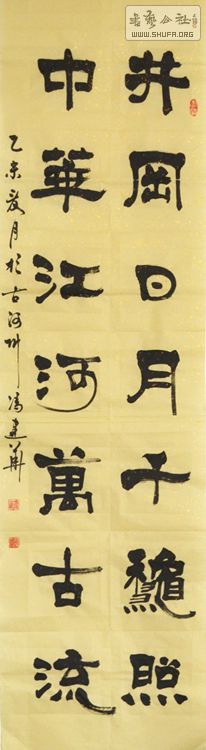 井岡日月千龝照
中華江河萬古流
乙未夏月於古河州馮建華
書藝公社
WWW.SHUFA.ORG